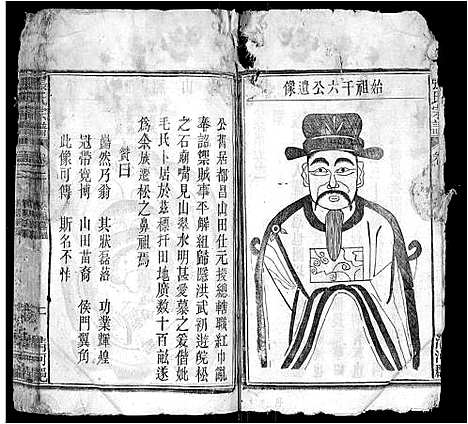 始祖千六公遺像
公舊居都昌山田仕元授總轄職紅巾亂
奉詔禦賊事平解組歸隱洪武初遊皖松
之石廟嘴見山翠水明甚愛慕之爰偕妣
毛氏卜居於茲標扦田地廣數十百畝遂
為余族遷松之鼻祖焉
贊曰
巋然乃翁 其狀磊落 功業輝煌
冠帶寬博 山田苗裔 侯門翼角
此像可傳 斯名不怍